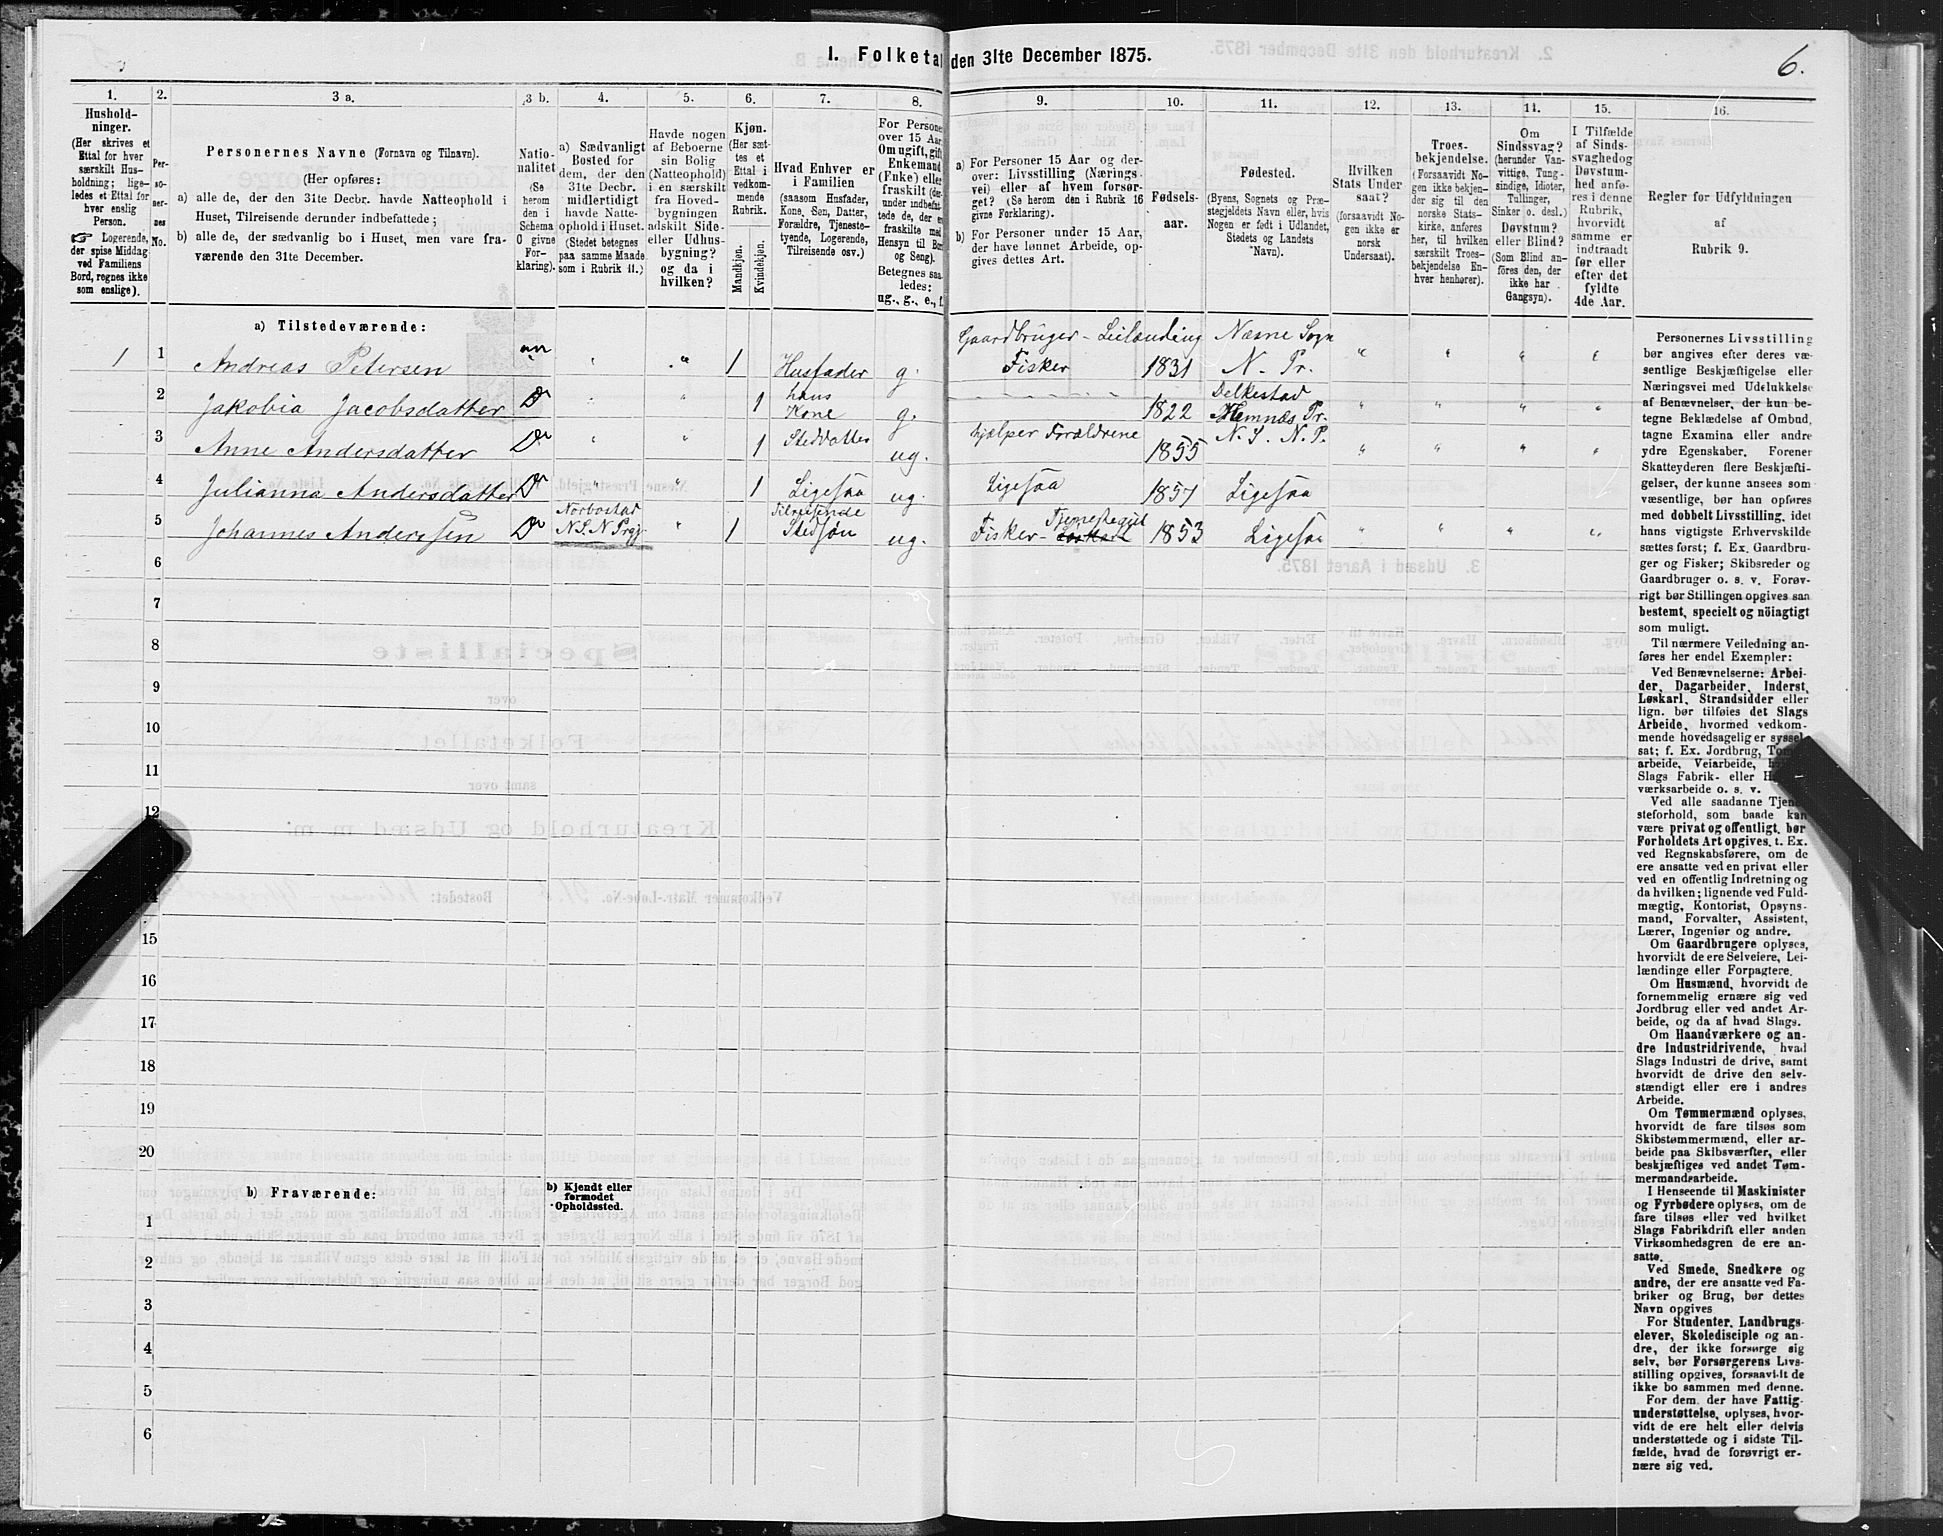 1. Folketal den 31te December 1875.
6.
1.
Hushold-
ninger.
(Her skrives et
Ettal for hver
særskilt Hus-
holdning; lige-
ledes et Ettal for
hver enslig
Person.
☞ Logerende,
der spise Middag
ved Familiens
Bord, regnes ikke
som enslige).
2.
Per-
so-
ner-
nes
No.
3 a.
Personernes Navne (Fornavn og Tilnavn).
(Her opføres:
a) alle de, der den 31te Decbr. havde Natteophold i
Huset, Tilreisende derunder indbefattede;
b) alle de, der sædvanlig bo i Huset, men vare fra-
værende den 31te December.
3 b.
Natio-
nalitet
(Se
herom
den i
Schema
O givne
For-
klaring).
4.
a) Sædvanligt
Bosted for
dem, der den
31te Decbr.
midlertidigt
havde Natte-
ophold i Huset.
(Stedet betegnes
paa samme Maade
som i Rubrik 11.)
5.
Havde nogen
af Beboerne
sin Bolig
(Natteophold)
i en særskilt
fra Hoved-
bygningen
adskilt Side-
eller Udhus-
bygning?
og da i
hvilken?
6.
Kjøn.
(Her sæt-
tes et
Ettal i
vedkom-
mende
Rubrik.
Mandkjøn.
Kvindekjøn.
7.
Hvad Enhver er
i Familien
(saasom Husfader,
Kone, Søn, Datter,
Forældre, Tjeneste-
tyende, Logerende,
Tilreisende osv.)
8.
For Persone
over 15 Aar
Om ugift, gift
Enkemand
(Enke) eller
fraskilt (der-
under indbefat-
tede de, der er
fraskilte med
Hensyn til Bor
og Seng).
Betegnes saa
ledes:
ug., g., e., f.
9.
a) For Personer 15 Aar og der-
over: Livsstilling (Nærings-
vei) eller af hvem forsør-
get? (Se herom den i Rubrik 16
givne Forklaring).
b) For Personer under 15 Aar,
der have lønnet Arbeide, op-
gives dettes Art.
10.
Fødsels-
aar.
11.
Fødested.
(Byens, Sognets og Præ-
stegjeldets Navn eller, hvis
Nogen er født i Udlandet,
Stedets og Landets
Navn).
12.
Hvilken
Stats Under
saat?
(forsaavidt No-
gen ikke er
norsk
Undersaat).
13.
Troes-
bekjendelse.
(Forsaavidt No-
gen ikke bekjen-
der sig til den
norske Stats-
kirke, anføres
her, til hvilken
særskilt Troes-
bekjendelse En-
hver henhører).
14.
Om
Sindssvag?
(herunder Van-
vittige, Tung-
sindige, Idioter,
Tullinger,
Sinker o. desl.)
Døvstum?
eller Blind?
(Som Blind an-
føres den, der
ikke har
Gangsyn).
15.
I Tilfælde
af Sinds-
svaghedog
Døvstum-
hed anfø-
res i denne
Rubrik,
hvorvidt
samme er
indtraadt
før eller
efter det
fyldte
4de Aar.
16.
Regler for Udfyldningen
af
Rubrik 9.
a) Tilstedeværende:
1 1 Andreas Petersen nn " " 1 Husfader g. Gaardbruger - Leilænding Fisker 1831 Næsne Sogn N. Pr. " " " "
2 Jakobia Jacobsdatter Do " " 1 hans Kone g. 1822 Delkestad Hemnæs Pr. " " " "
3 Anne Andersdatter Do " " 1 Steddatter ug. hjælper Forældrene 1855 N. S. N. P. " " " "
4 Julianna Andersdatter Do " " 1 Ligesaa ug. Ligesaa 1857 Ligesaa
5 Johannes Anderssen Do N.S. N Prgj. " 1 Tilreisende Stedsøn ug. Fisker - 1853 Ligesaa " " " "
6
7
8
9
10
11
12
15
16
17
18
19
20
b) Fraværende:
b) Kjendt eller
formodet
Opholdssted.
1
2
3
4
5
6
Personernes Livsstilling
bør angives efter deres væ-
sentlige Beskjæftigelse eller
Næringsvei med Udelukkelse
af Benævnelser, der kun be-
tegne Beklædelse af Ombud,
tagne Examina eller andre
ydre Egenskaber. Forener
Skatteyderen flere Beskjæfti-
gelser, der kunne ansees som
væsentlige, bør han opføres
med dobbelt Livsstilling, idet
hans vigtigste Erhvervskilde
sættes først; f. Ex. Gaardbru-
ger og Fisker; Skibsreder og
Gaardbruger o. s. v. Forøv-
rigt bør Stillingen opgives saa
bestemt, specielt og nöiagtigt
som muligt.
Til nærmere Veiledning an-
føres her endel Exempler:
Ved Benævnelserne: Arbei-
der, Dagarbeider, Inderst,
Løskarl, Strandsidder eller
lign. bør tilføies det Slags
Arbeide, hvormed vedkom-
mende hovedsagelig er syssel-
sat; f. Ex. Jordbrug,
arbeide, Veiarbeide,
Slags Fabrik- eller
værksarbeide o. s. v.
Ved alle saadanne Tjene-
steforhold, som baade kan
være privat og offentligt, bør
Forholdets Art opgives, t. Ex.
ved Regnskabsførere, om de
ere ansatte ved en privat eller
ved en offentlig Indretning og
da hvilken; lignende ved Fuld-
mægtig, Kontorist, Opsyns-
mand, Forvalter, Assistent,
Lærer, Ingeniør og andre.
Om Gaardbrugere oplyses,
hvorvidt de ere Selveiere, Lei-
lændinge eller Forpagtere.
Om Husmænd, hvorvidt de
fornemmelig ernære sig ved
Jordbrug eller ved andet Ar-
beide, og da af hvad Slags.
Om Haandværkere og an-
dre Industridrivende, hvad
Slags Industri de drive, samt
hvorvidt de drive den selv-
stændigt eller ere i andres
Arbeide.
Om Tømmermænd oplyses,
hvorvidt de fare tilsøs som
Skibstømmermænd, eller ar-
beide paa Skibsværfter, eller
beskjæftiges ved andet Tøm-
mermandsarbeide.
I Henseende til Maskinister
og Fyrbødere oplyses, om de
fare tilsøs eller ved hvilket
Slags Fabrikdrift eller anden
Virksomhedsgren de ere an-
satte.
Ved Smede, Snedkere og
andre, der ere ansatte ved Fa-
briker og Brug, bør dettes
Navn opgives
For Studenter, Landbrugs-
elever, Skoledisciple og an-
dre, der ikke forsørge sig
selv, bør Forsørgerens Livs-
stilling opgives, forsaavidt de
ikke bo sammen med denne.
For dem, der have Fattig-
understøttelse, oplyses, hvor-
vidt de ere helt eller delvis
understøttede og i sidste Til-
fælde, hvad de forøvrigt er-
nære sig ved.